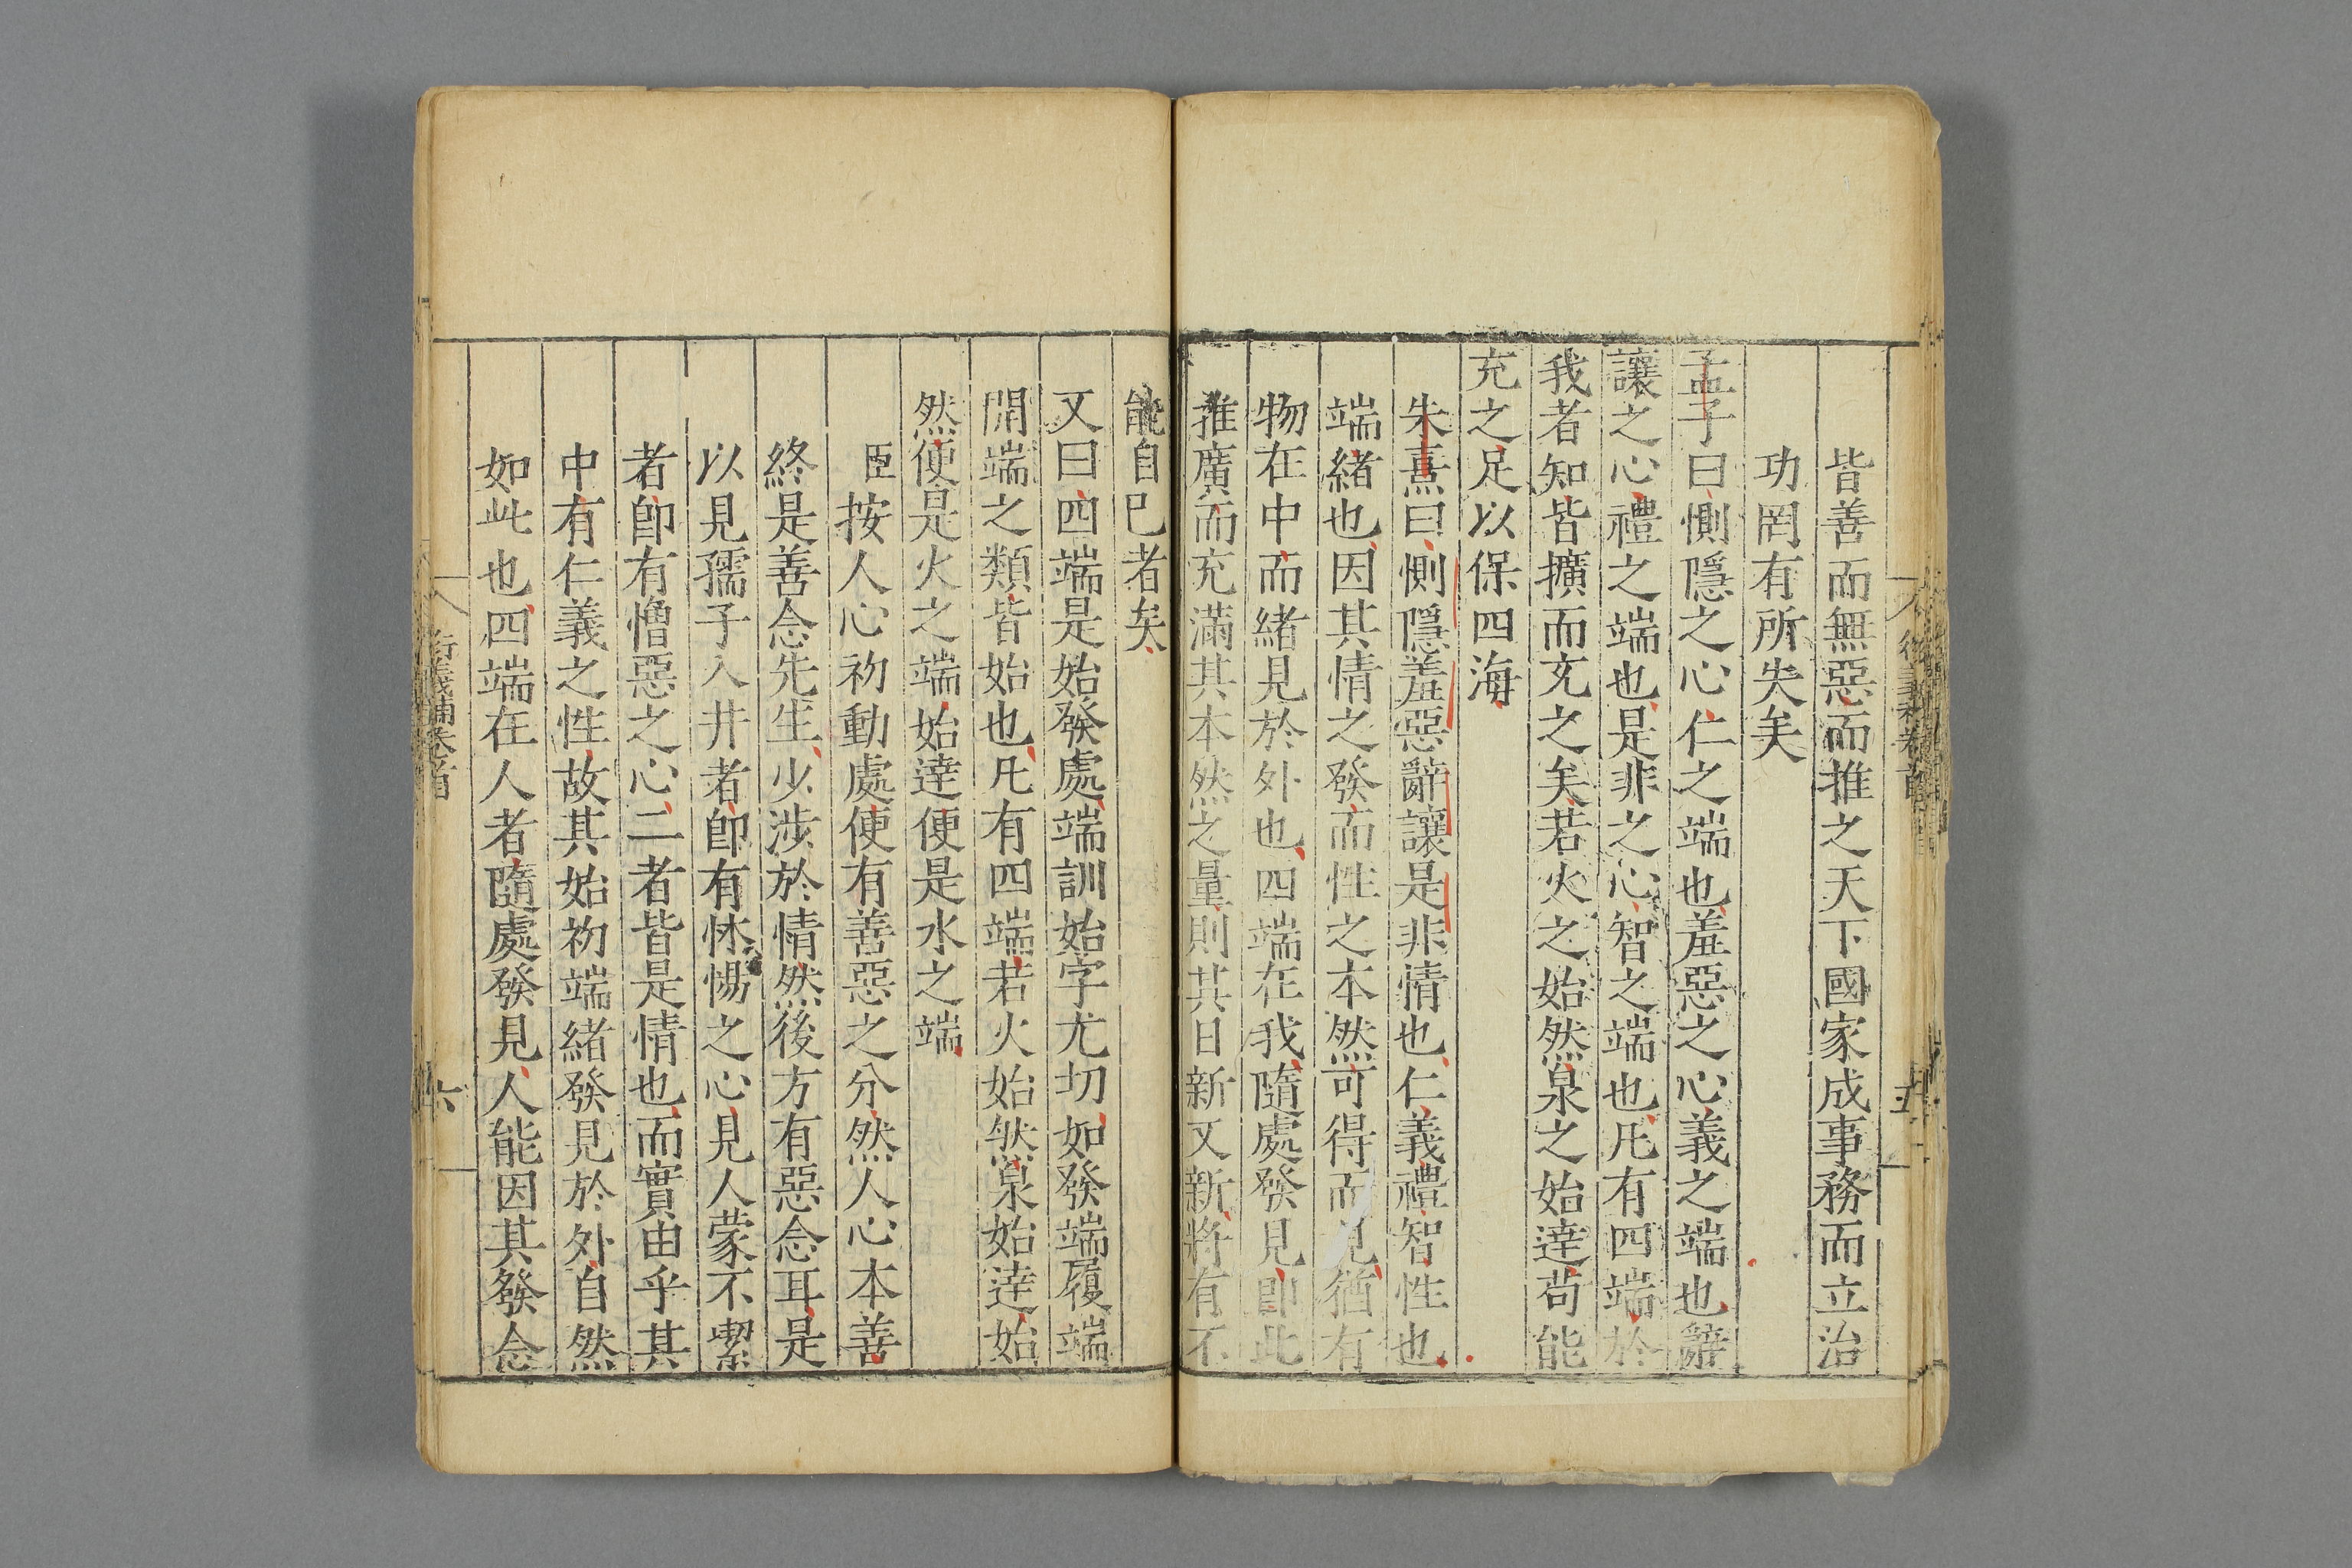 皆善而無惡而推之天下國家成事務而立治
功罔有所失矣
孟子曰惻隱之心仁之端也羞惡之心義之端也辭
讓之心禮之端也是非之心智之端也凡有四端於
我者知皆擴而充之矣若火之始然泉之始達苟能
充之足以保四海
朱熹曰惻隱羞惡辭讓是非情也仁義禮智性也
端緒也因其情之發而性之本然可得而見猶有
物在中而緒見於外也四端在我隨處發見即此
推廣而充滿其本然之量則其日新又新將有不
能自已者矣
又曰四端是始發處端訓始字尤切如發端履端
開端之類皆始也凡有四端若火始然泉始達始
然便是火之端始達便是水之端
臣按人心初動處便有善惡之分然人心本善
終是善念先生少涉於情然後方有惡念耳是
以見孺子入井者即有怵惕之心見人蒙不潔
者即有憎惡之心二者皆是情也而實由乎其
中有仁義之性故其始初端緒發見於外自然
如此也四端在人者隨處發見人能因其發念
衍義補卷首
六